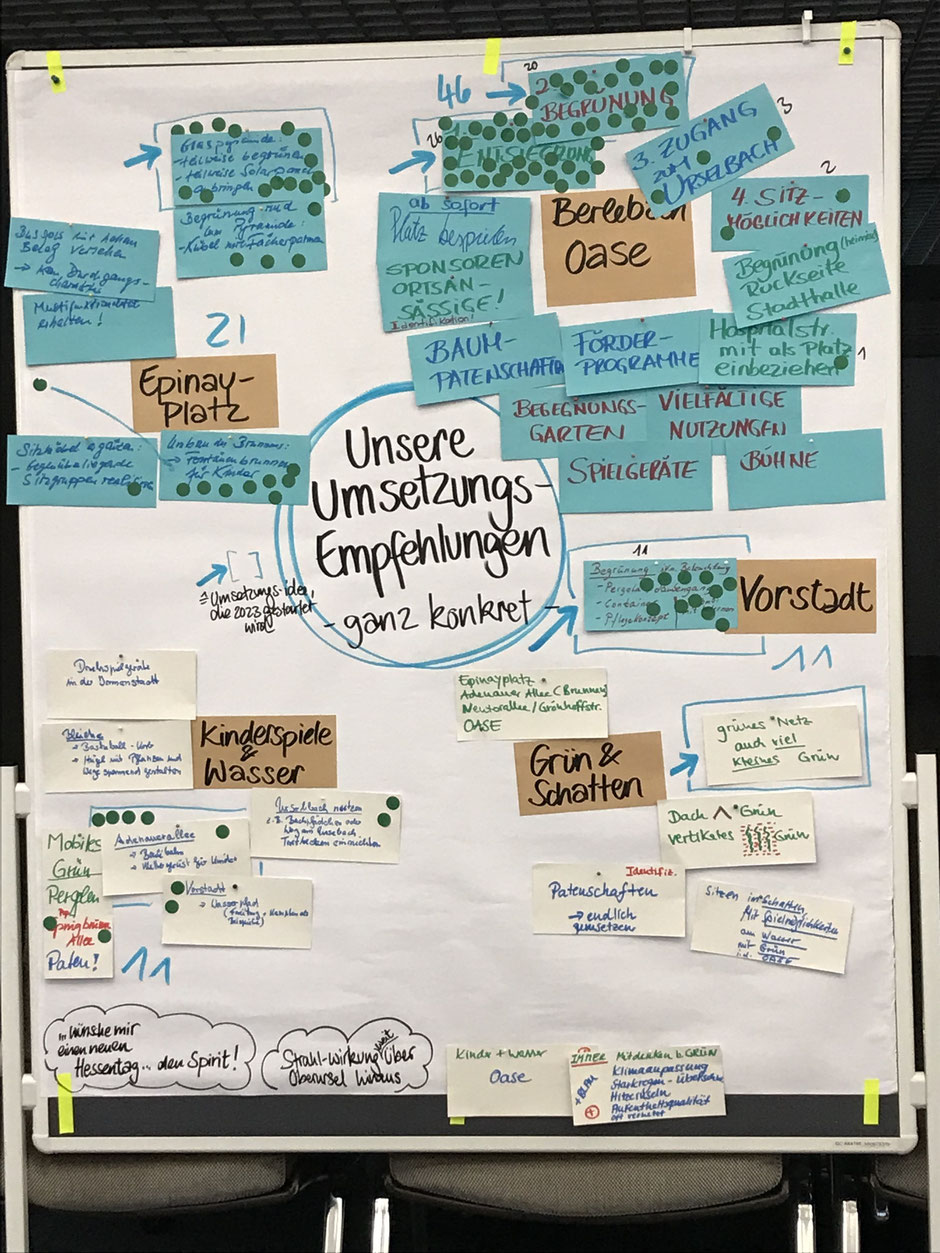 Unsere
Umsetzungs-
Empfehlungen
- ganz konkret -
46
20
2.
BEGRÜNUNG
26
ENTSIEGELUNG
3. ZUGANG
ZUM
URSELBACH
3
2
4. SITZ-
MÖGLICHKEITEN
ab sofort
Platz bespielen
SPONSOREN
ORTSAN-
SÄSSIGE!
Identifikation!
Oase
Begrünung (heimisch)
Rückseite
Stadthalle
BAUM-
PATENSCHAFTEN
FÖRDER-
PROGRAMME
Hospitalstr.
mit als Platz
einbeziehen
1
BEGEGNUNGS-
GARTEN
VIELFÄLTIGE
NUTZUNGEN
SPIELGERÄTE
BÜHNE
Glaspyramide:
- teilweise begrünen
- teilweise Solarpanel
anbringen
Begrünung rund
um Pyramide:
- Kübel mit Fächerpalmen
Belag versehen
→ kein Durchgangs-
charakter
erhalten!
21
Epinay-
Platz
Sitzgruppen
Umbau des Brunnens:
→ Fontänenbrunnen
für Kinder
= Umsetzungs-idee,
die 2023 gestartet
wird
11
Begrünung
- Pergola
- Container
- Pflegekonzept
Vorstadt
11
in der
Bleiche
- Basketball-Korb
- Hügel mit Pflanzen und
Wege spannend gestalten
Kinderspiele
&
Wasser
Urselbach nutzen
z.B.
Tretbecken einrichten
Adenauerallee
→
→
Vorstadt
→ Wasserpfad
Mobiles
Grün
Pergolen
Allee
Paten!
11
Epinayplatz
Adenauer Allee (Brunnen)
Neutorallee/
OASE
Grün &
Schatten
grünes Netz
auch viel
kleines Grün
Dach ^ Grün
vertikales Grün
Identifik.
Patenschaften
→ endlich
umsetzen
Sitzen im Schatten
Mit Spielmöglichkeiten
am Wasser
mit Grün
i.d. OASE
... wünsche mir
einen neuen
Hessentag... den Spirit!
Strahl-wirkung weit über
Oberursel hinaus
Kinder + Wasser
Oase
IMMER Mitdenken b. GRÜN
+ BLAU
Klimaanpassung
Starkregen-
Hitzeinseln
Aufenthaltsqualität